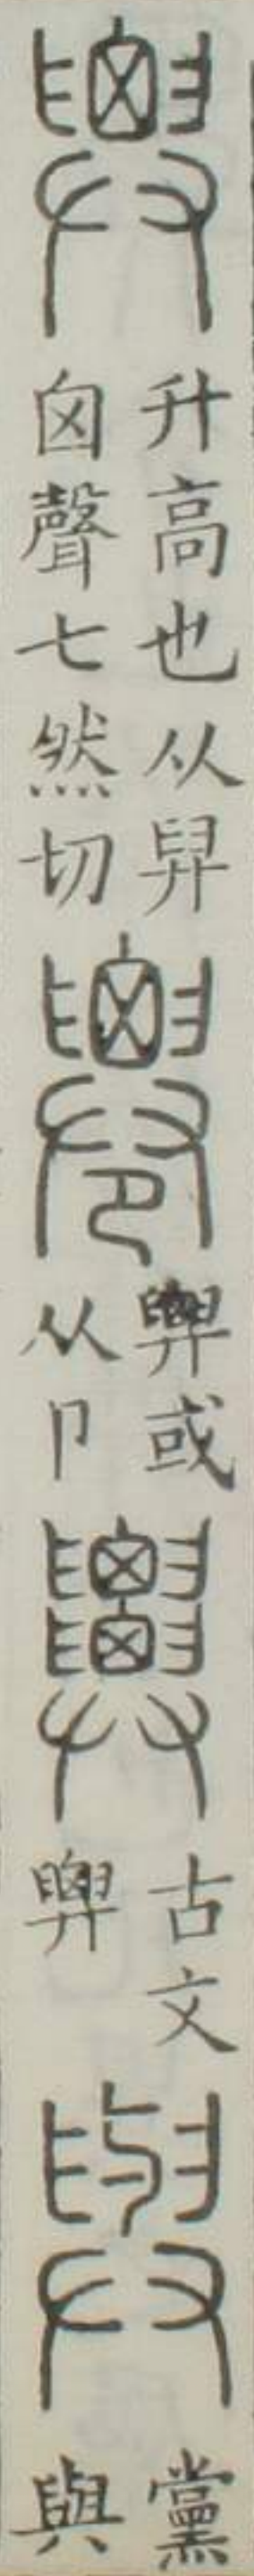 䙴
升高也从舁
囟聲七然切
䙴或
从卩
古文
䙴
與
黨
與